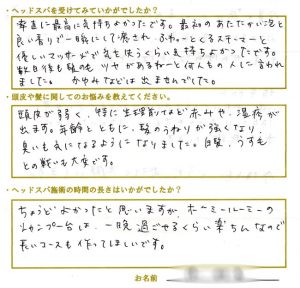 ・ヘッドスパを受けてみていかがでしたか？
率直に最高に気持ちよかったです。最初のあたたかい泡と
良い香りで一瞬にして癒され ふわーっとくるスチーマーと
優しいマッサージで気を失うくらい気持ちよかったです。
数日後も髪のもツヤがあるねーと何人もの人に言われ
ました。かゆみなどは出ませんでした。
・頭皮や髪に関してのお悩みを教えてください。
頭皮が弱く、特に生理前などは赤みや、湿疹が
出ます。年齢とともに、髪のうねりが強くなり、
臭いも気になるようになりました。白髪、うすも
との戦いも大変です。
・ヘッドスパ施術の時間の長さはいかがでしたか？
ちょうどよかったと思いますが、ホーミールーミーの
シャンプー台は、一晩過ごせるくらい楽ちんなので
長いコースも作ってほしいです。
お名前